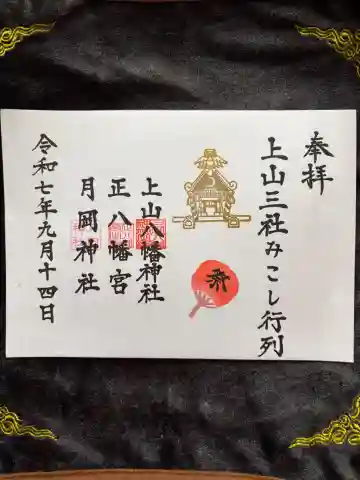 奉拝
上山三社みこし行列
祭
上山八幡神社
正八幡宮
月岡神社
令和七年九月十四日